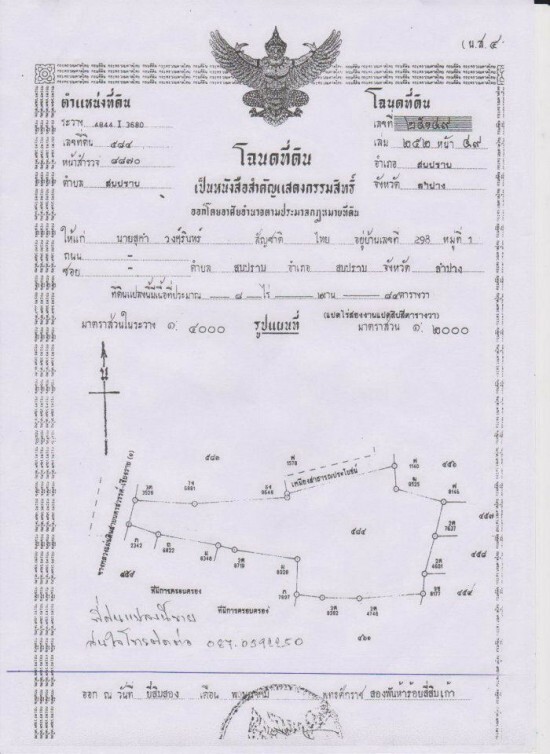 (น.ส.๔
ตำแหน่งที่ดิน
ระวาง 4844 I 3680
เลขที่ดิน ๕๘๔
หน้าสำรวจ ๔๘๗๐
ตำบล สบปราบ
โฉนดที่ดิน
เลขที่ ๒๕๑๔๙
เล่ม ๒๕๒ หน้า ๔๙
อำเภอ สบปราบ
จังหวัด ลำปาง
โฉนดที่ดิน
เป็นหนังสือสำคัญแสดงกรรมสิทธิ์
ออกโดยอาศัยอำนาจตามประมวลกฎหมายที่ดิน
ให้แก่ นายสุคำ วงศ์รินทร์ สัญชาติ ไทย อยู่บ้านเลขที่ 298 หมู่ที่ 1
ถนน -
ซอย - ตำบล สบปราบ อำเภอ สบปราบ จังหวัด ลำปาง
ที่ดินแปลงนี้มีเนื้อที่ประมาณ ๘ ไร่ ๒ งาน ๘๔ ตารางวา
(แปดไร่สองงานแปดสิบสี่ตารางวา)
มาตราส่วนในระวาง ๑: ๔๐๐๐ รูปแผนที่ มาตราส่วน ๑: ๒๐๐๐
น
๕๘๑
ห 1578
เหมืองสาธารณประโยชน์
ห 1140
๔๕๖
๕๘๔
๔๕๗
๔๕๘
๔๕๙
ที่มีการครอบครอง
ที่มีการครอบครอง
๔๖๑
ที่ดินแปลงนี้ขาย
สนใจโทรติดต่อ
ออก ณ วันที่ ยี่สิบสอง เดือน พุทธศักราช สองพันห้าร้อยสี่สิบเก้า